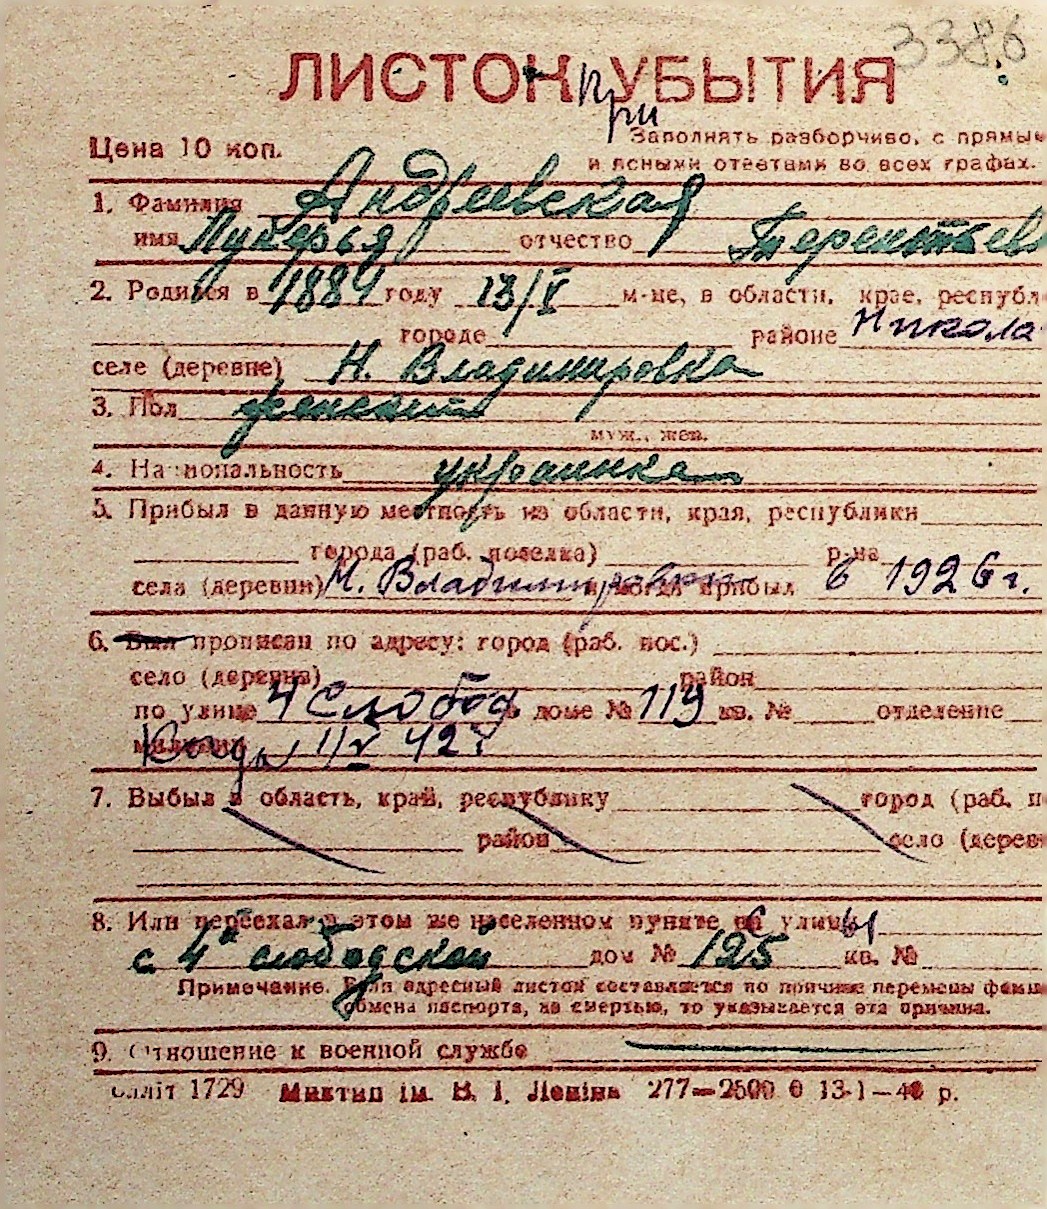 3386
ЛИСТОК УБЫТИЯ
при
Цена 10 коп.
Заполнять разборчиво, с прямы
и ясными ответами во всех графах.
1. Фамилия Андреевская
имя Лукерья отчество Терентьев
2. Родился в 1884 году 13/V м-це, в области, крае, республ
городе районе Никола
селе (деревне) Н. Владимировка
3. Пол женский
муж., жен.
4. Национальность украинка
5. Прибыл в данную местность из области, края, республики
города (раб. поселка) р-на
села (деревни) Н. Владимировки и когда прибыл 6 1926 г.
6. Был прописан по адресу: город (раб. пос.)
село (деревня) район
по улице 4 Слобод доме № 119 кв. № отделение
милиции 11/V 42 г
7. Выбыл в область, край, республику город (раб. п
район село (дерев
8. Или переехал в этом же населенном пункте с улицы
с 4й слободской дом № 125 кв. №
Примечание. Если адресный листок составляется по причине перемены фами
обмена паспорта, за смертью, то указывается эта причина.
9. Отношение к военной службе
лліт 1729 Миктип ім. В. І. Леніна 277—2500 0 13-1—40 р.